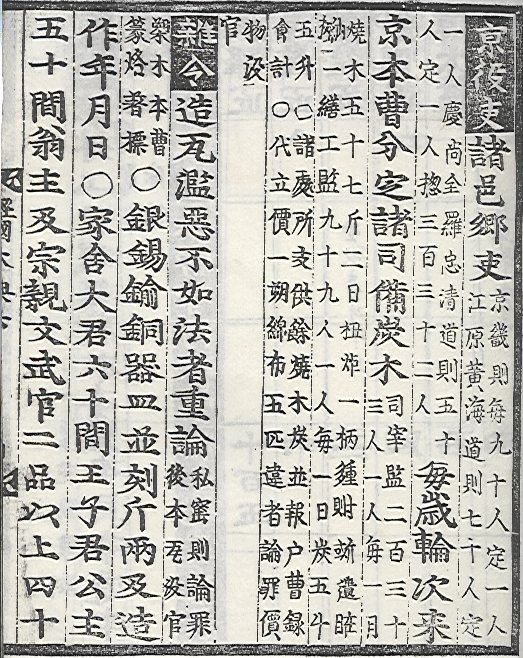 京役吏諸邑鄉吏京畿則每九十人定一人
江原黃海道則七十人定
一人慶尙全羅忠清道則五十
人定一人摠三百三十二人每歲輪次来
京本曹分定諸司備炭木司宰監二百三十
三人一人每一月
燒木五十七斤二日杻炸一柄
一繕工監九十九人一人每一日炭五斗
五升○諸處所支供餘燒木炭並報戶曹錄
會計○代立價一朔綿布五匹違者論罪價
物沒
官
雜令造瓦濫惡不如法者重論私窰則論罪
後本瓦沒官
木本曹
篆烙着標○銀錫鍮銅器皿並刻斤兩及造
作年月日○家舍大君六十間王子君公主
五十間翁主及宗親文武官二品以上四十
經國大典